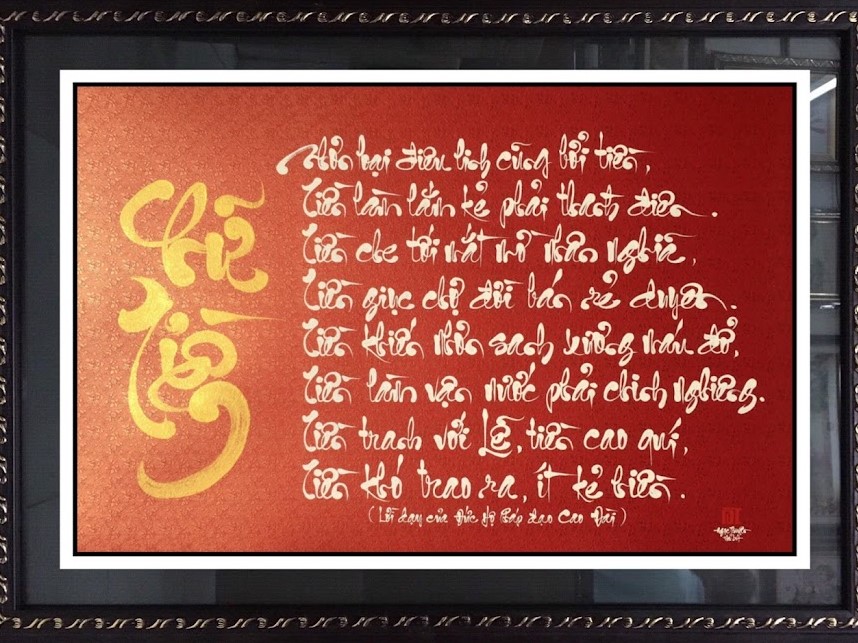 Chữ
Tiền
Nhơn loại điêu linh cũng bởi tiền,
Tiền làm lắm kẻ phải thành điên.
Tiền che tối mắt mờ nhân nghĩa,
Tiền giục chợ đời bán rẻ duyên.
Tiền khiến nhơn sanh xương máu đổ,
Tiền làm vận nước phải chinh nghiêng.
Tiền tranh với Lễ, tiền cao quí,
Tiền khó trao ra, ít kẻ biền.
(Lời dạy của Đức Hộ Pháp đạo Cao Đài)